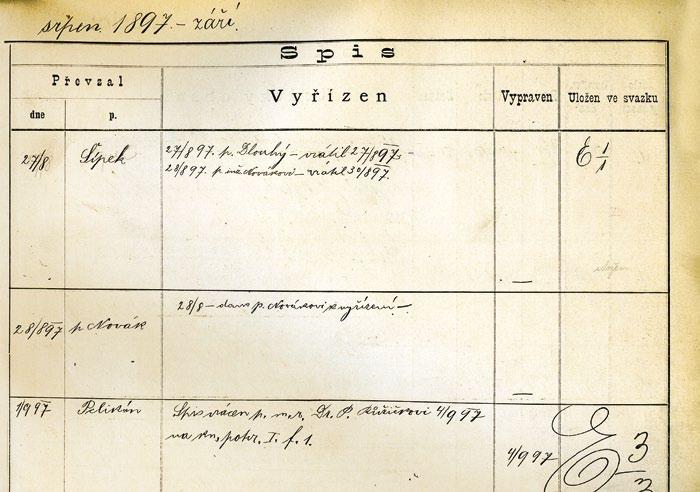 srpen 1897 – září.
Spis
Převzal
Vyřízen
Vypraven
Uložen ve svazku
dne
p.
27/8
Šípek
27/8 97. p. Dlouhý – vrátil 27/8 97 –
28/8 97. p. Novákovi – vrátil 30/8 97.
E 1/1
—
28/8 97
p Novák
28/8 – dano p. Novákovi k vyřízení –
—
1/9 97
Pelikán
Spis vrácen p. m. r. Dr. P. 4/9 97
na kn. pohr. I. f. 1.
4/9 97
E 3/3